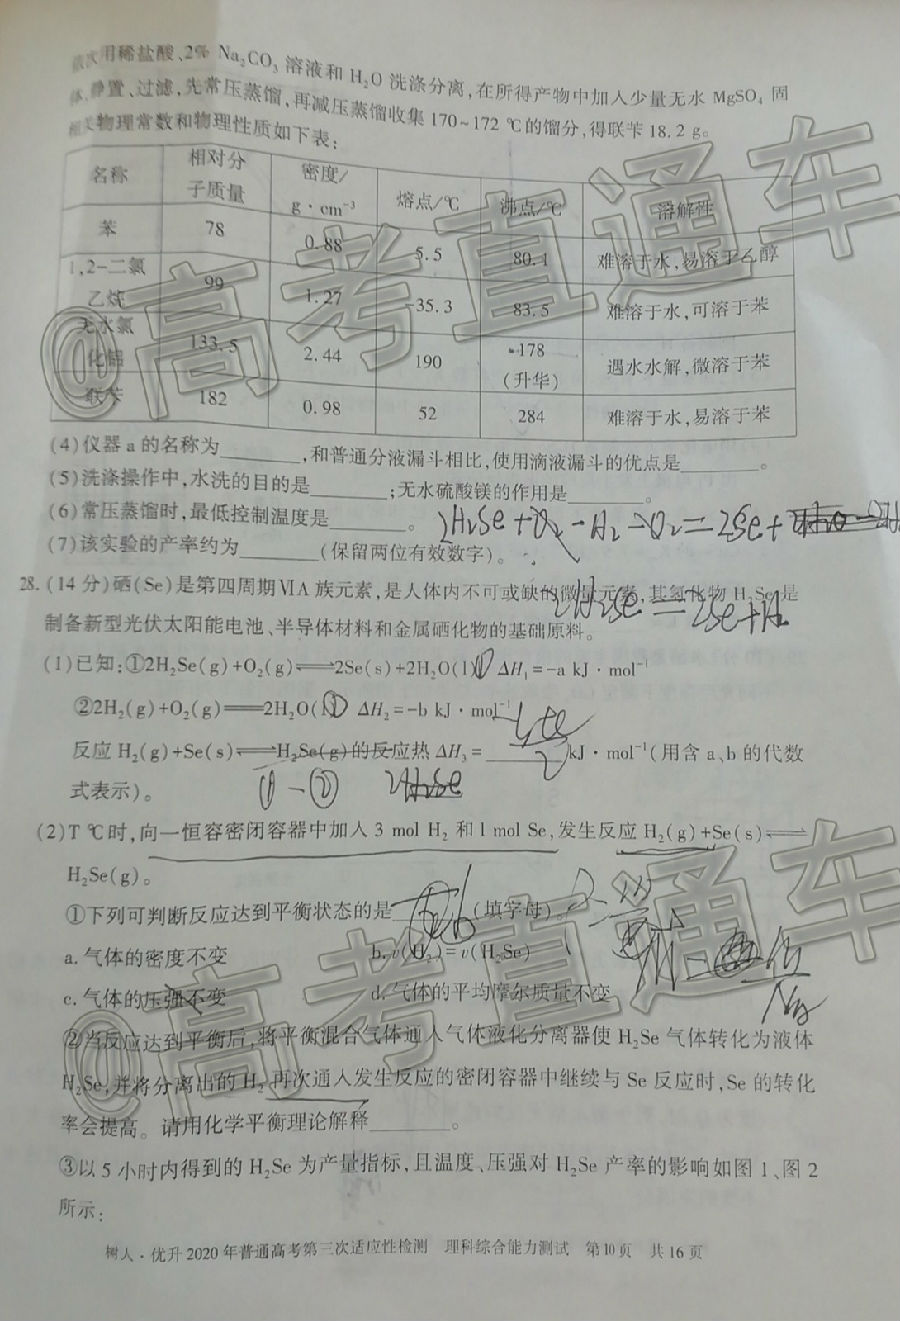 用稀盐酸、2% Na₂CO₃ 溶液和 H₂O 洗涤分离,在所得产物中加入少量无水 MgSO₄ 固
体,静置、过滤,先常压蒸馏,再减压蒸馏收集 170~172 ℃的馏分,得联苄 18.2 g。
相关物理常数和物理性质如下表:
名称 相对分子质量 密度/g·cm⁻³ 熔点/℃ 沸点/℃ 溶解性
苯 78 0.88 5.5 80.1 难溶于水,易溶于乙醇
1,2-二氯乙烷 99 1.27 -35.3 83.5 难溶于水,可溶于苯
无水氯化铝 133.5 2.44 190 178(升华) 遇水水解,微溶于苯
联苄 182 0.98 52 284 难溶于水,易溶于苯
(4)仪器 a 的名称为________,和普通分液漏斗相比,使用滴液漏斗的优点是________。
(5)洗涤操作中,水洗的目的是________;无水硫酸镁的作用是________。
(6)常压蒸馏时,最低控制温度是________。
2H₂Se+O₂-H₂-O₂=2Se+
(7)该实验的产率约为________(保留两位有效数字)。
28.(14 分)硒(Se)是第四周期ⅥA 族元素,是人体内不可或缺的微量元素,其氢化物 H₂Se 是
2H₂Se=2Se+H
制备新型光伏太阳能电池、半导体材料和金属硒化物的基础原料。
(1)已知:①2H₂Se(g)+O₂(g)⇌2Se(s)+2H₂O(l) ① ΔH₁=-a kJ·mol⁻¹
②2H₂(g)+O₂(g)══2H₂O(l) ② ΔH₂=-b kJ·mol⁻¹
反应 H₂(g)+Se(s)⇌H₂Se(g)的反应热 ΔH₃=________kJ·mol⁻¹(用含 a、b 的代数
①-② 2H₂Se
式表示)。
(2)T ℃时,向一恒容密闭容器中加入 3 mol H₂ 和 1 mol Se,发生反应 H₂(g)+Se(s)⇌
H₂Se(g)。
①下列可判断反应达到平衡状态的是________(填字母)。
a. 气体的密度不变 b. v(H₂)=v(H₂Se)
c. 气体的压强不变 d. 气体的平均摩尔质量不变
②当反应达到平衡后,将平衡混合气体通入气体液化分离器使 H₂Se 气体转化为液体
H₂Se,并将分离出的 H₂ 再次通入发生反应的密闭容器中继续与 Se 反应时,Se 的转化
率会提高。请用化学平衡理论解释________。
③以 5 小时内得到的 H₂Se 为产量指标,且温度、压强对 H₂Se 产率的影响如图 1、图 2
所示:
树人·优升 2020 年普通高考第三次适应性检测 理科综合能力测试 第10页 共16页
@高考直通车
@高考直通车